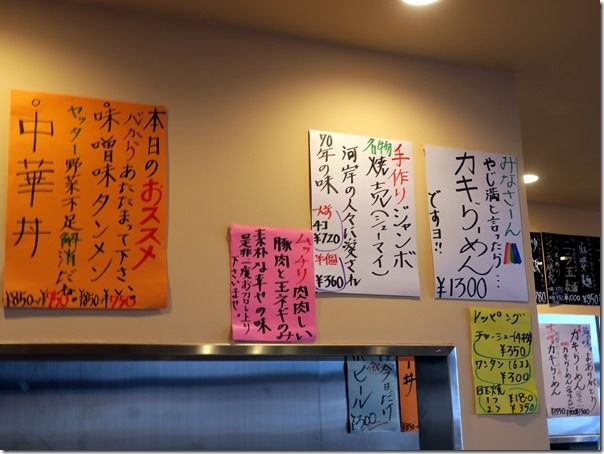 本日のおススメ
べからあたたまって下さい、
味噌味タンメン
ヤッター野菜不足解消だな
中華丼
¥850→¥750
¥850→¥750
ムッチリ肉肉しい
豚肉と玉ネギのみ
素朴な幸せの味
是非一度お召し上り
下さいませ
手作りジャンボ
名物焼売(シューマイ)
河岸の人々に愛され
70年の味
4コ
¥720
半個
¥360
みなさーん
やじ満と言ったら…
カキらーめん
ですヨ!!
¥1300
トッピング
チャーシュー(4枚)
¥350
ワンタン(6コ)
¥300
目玉焼
1つ ¥180
2つ ¥350
今日だけ
ビール
¥300
丼
カキらーめん
カキらーめん